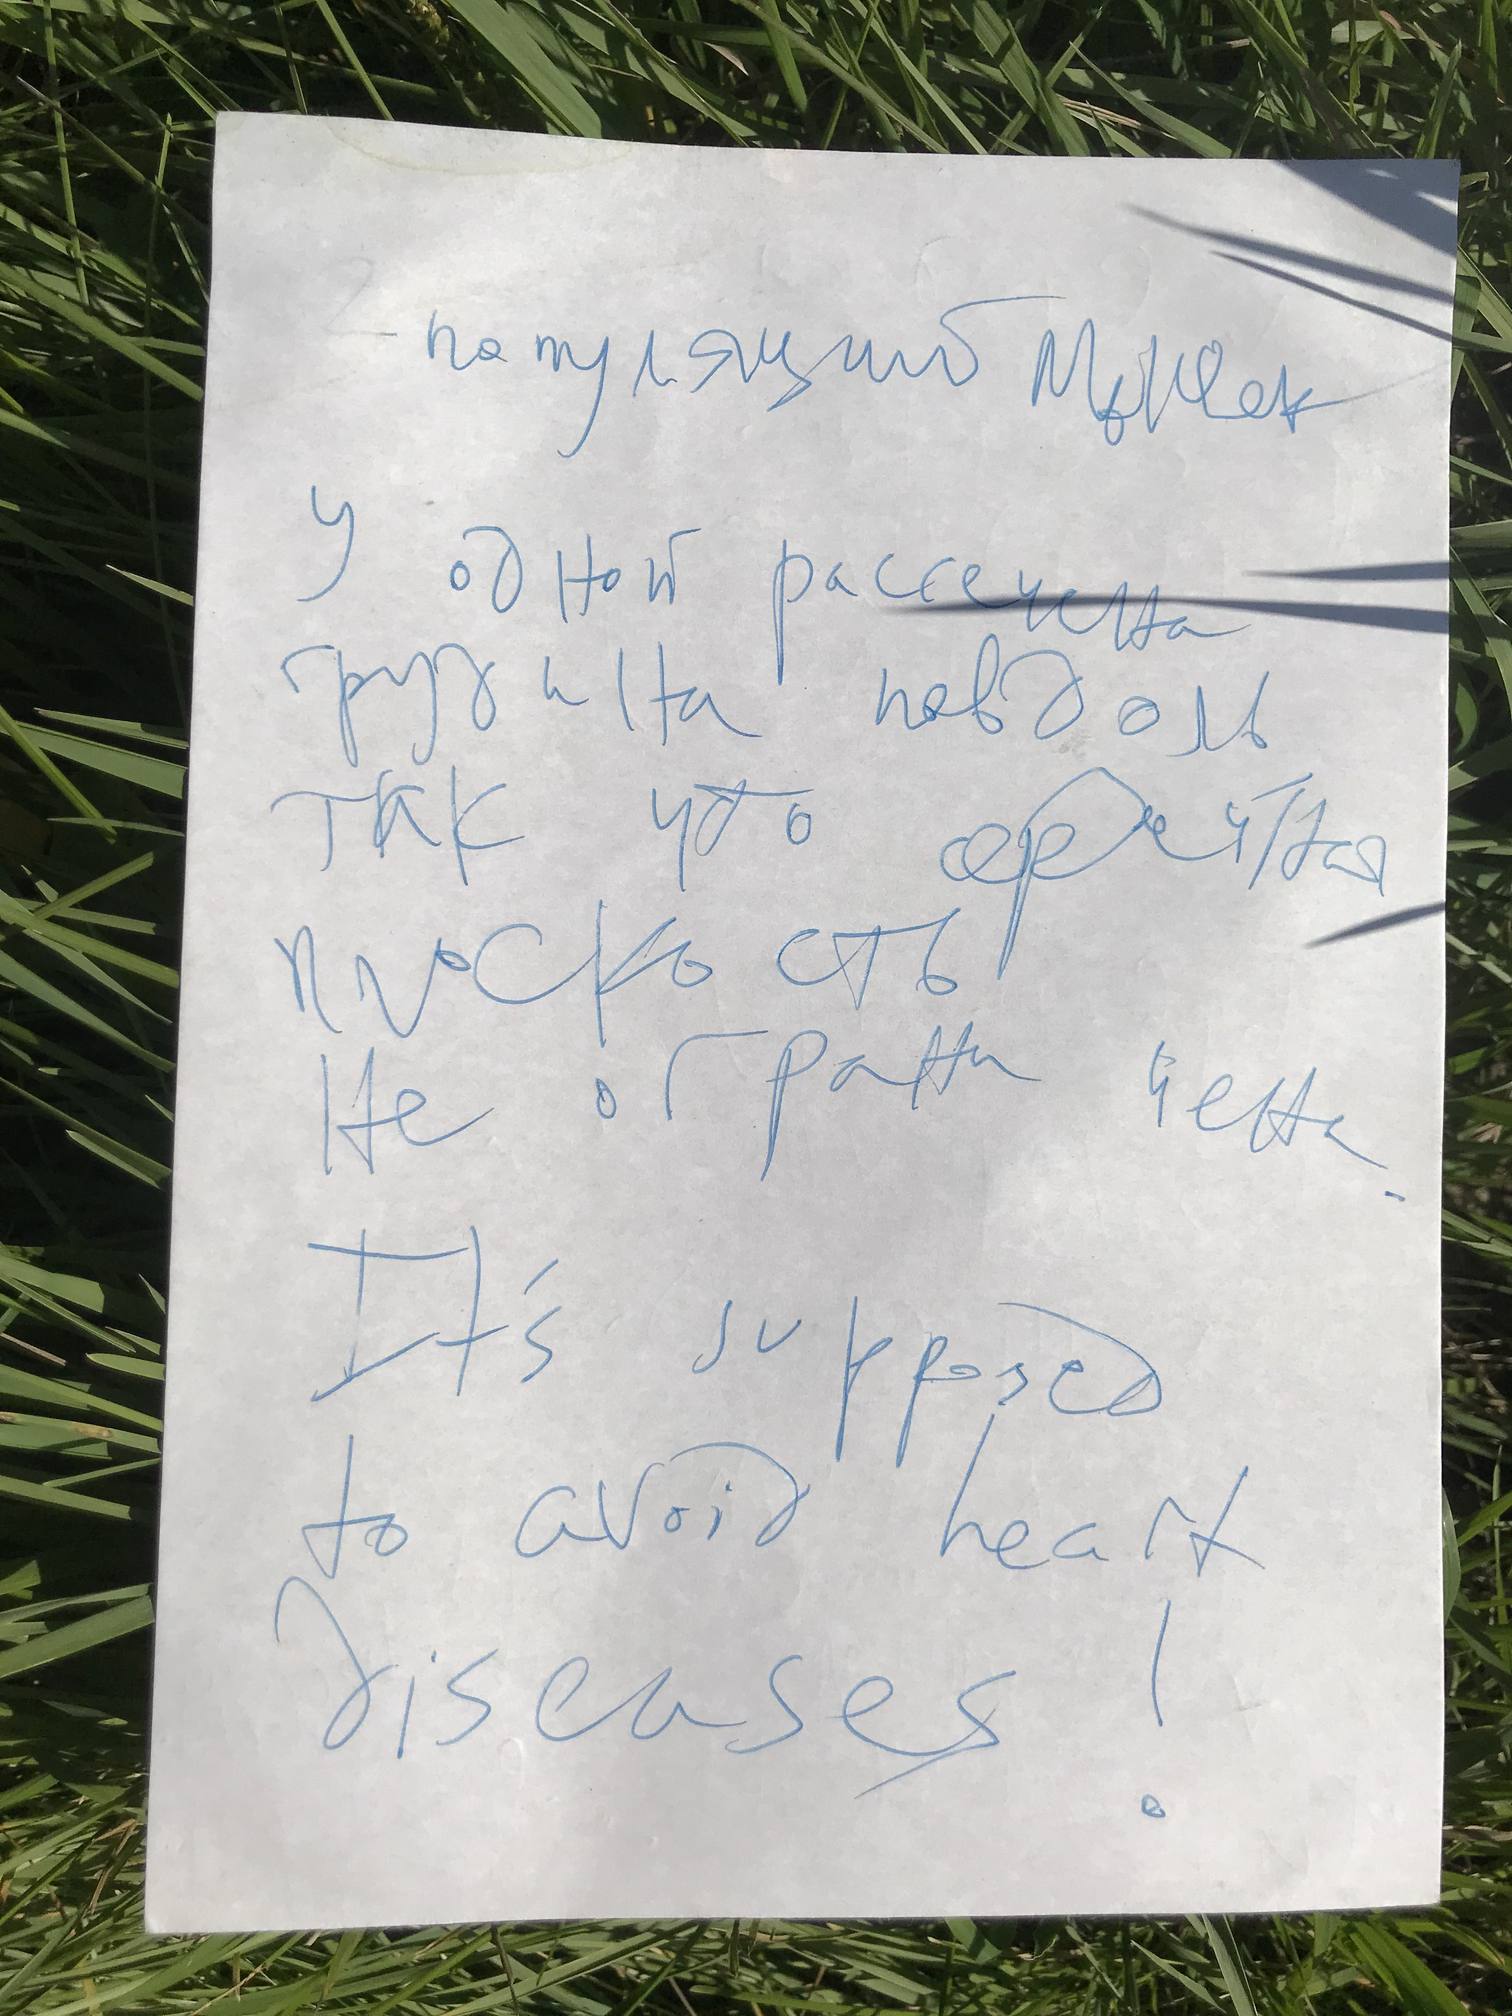 - популяций Мышек
У одной рассечена
грудина повдоль
так что
плоскость
не ограничена.
It's supposed
to avoid heart
diseases!